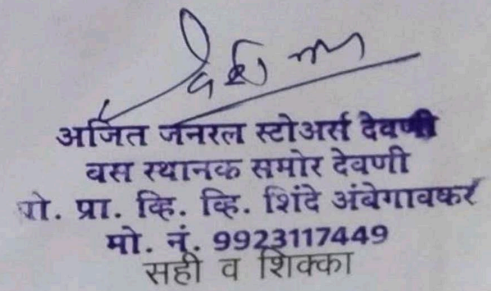 अजित जनरल स्टोअर्स देवणी
बस स्थानक समोर देवणी
प्रो. प्रा. व्हि. व्हि. शिंदे अंबेगावकर
मो. नं. 9923117449
सही व शिक्का